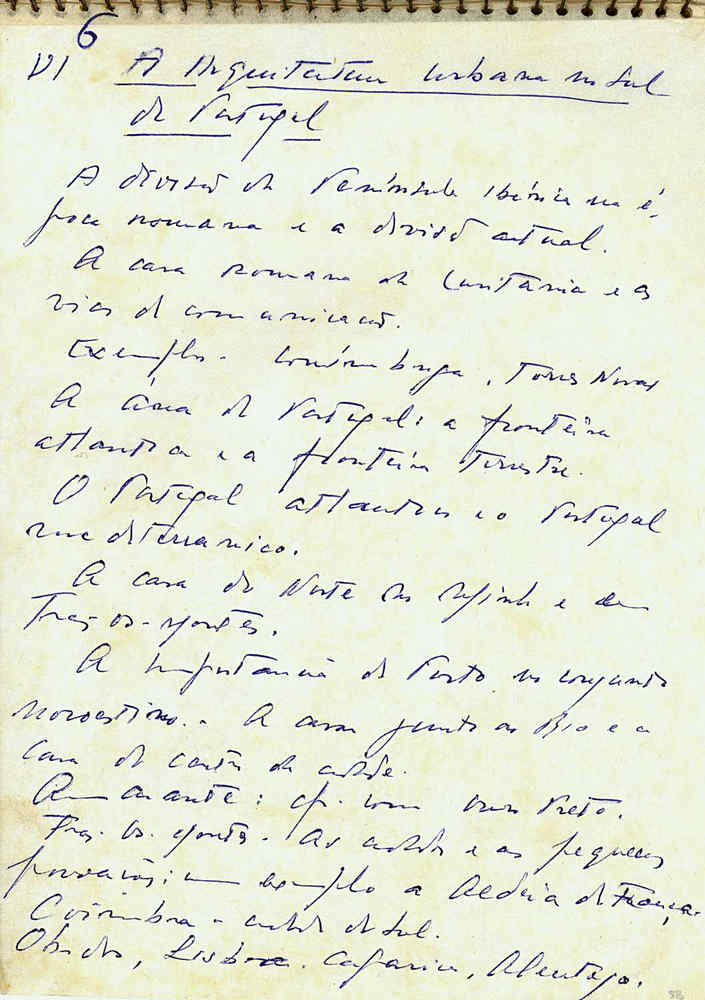 6
VI A Arquitetura urbana no Sul
de Portugal
A divisão da Península Ibérica na é-
poca romana e a divisão actual.
A casa romana da Lusitânia e as
vias de comunicação.
Exemplo - Conímbriga, Torres Novas
A área de Portugal: a fronteira
atlantica e a fronteira terrestre.
O Portugal atlantico e o Portugal
mediterranico.
A casa do Norte no Minho e em
Tras-os-Montes.
A importancia do Porto no conjunto
noroestino. - A casa junto ao Rio e a
casa do centro da cidade.
Amarante: cf. com Ouro Preto.
Tras-os-Montes - As cidades e as pequenas
povoações: um exemplo a Aldeia de França.
Coimbra - cidade do Sul.
Obidos, Lisboa. Alentejo.